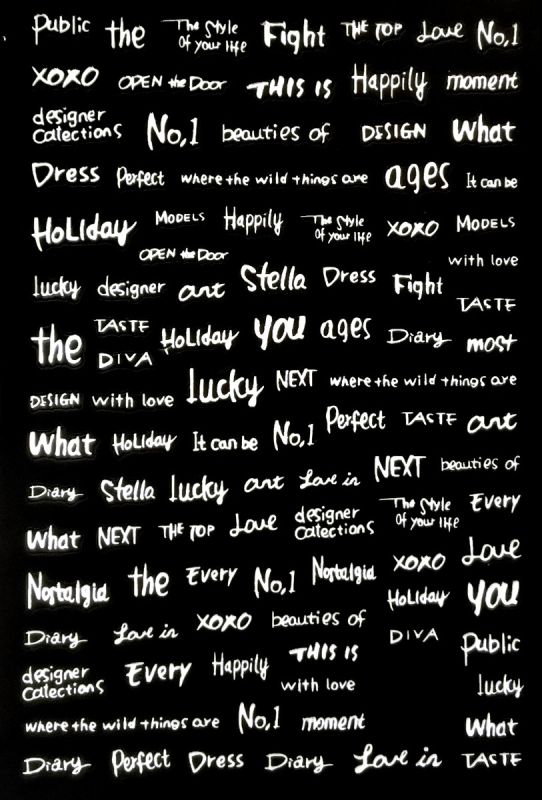 Public the The Style of your life Fight THE TOP Love No,1
XOXO OPEN the Door THIS IS Happily moment
designer Calections No,1 beauties of DESIGN What
Dress Perfect where the wild things are ages It can be
HoLiday MODELS Happily The Style of your life XOXO MODELS
OPEN the Door with love
lucky designer art Stella Dress Fight TASTE
the TASTE DIVA HoLiday you ages Diary most
DESIGN with love lucky NEXT where the wild things are
What HoLiday It can be No,1 Perfect TASTE art
Diary Stella lucky art Love in NEXT beauties of
What NEXT THE TOP Love designer Calections The Style of your life Every
Nortalgia the Every No,1 Nortalgia XOXO Love
HoLiday you
Diary Love in XOXO beauties of DIVA Public
designer Calections Every Happily THIS IS with love lucky
where the wild things are No,1 moment What
Diary Perfect Dress Diary Love in TASTE